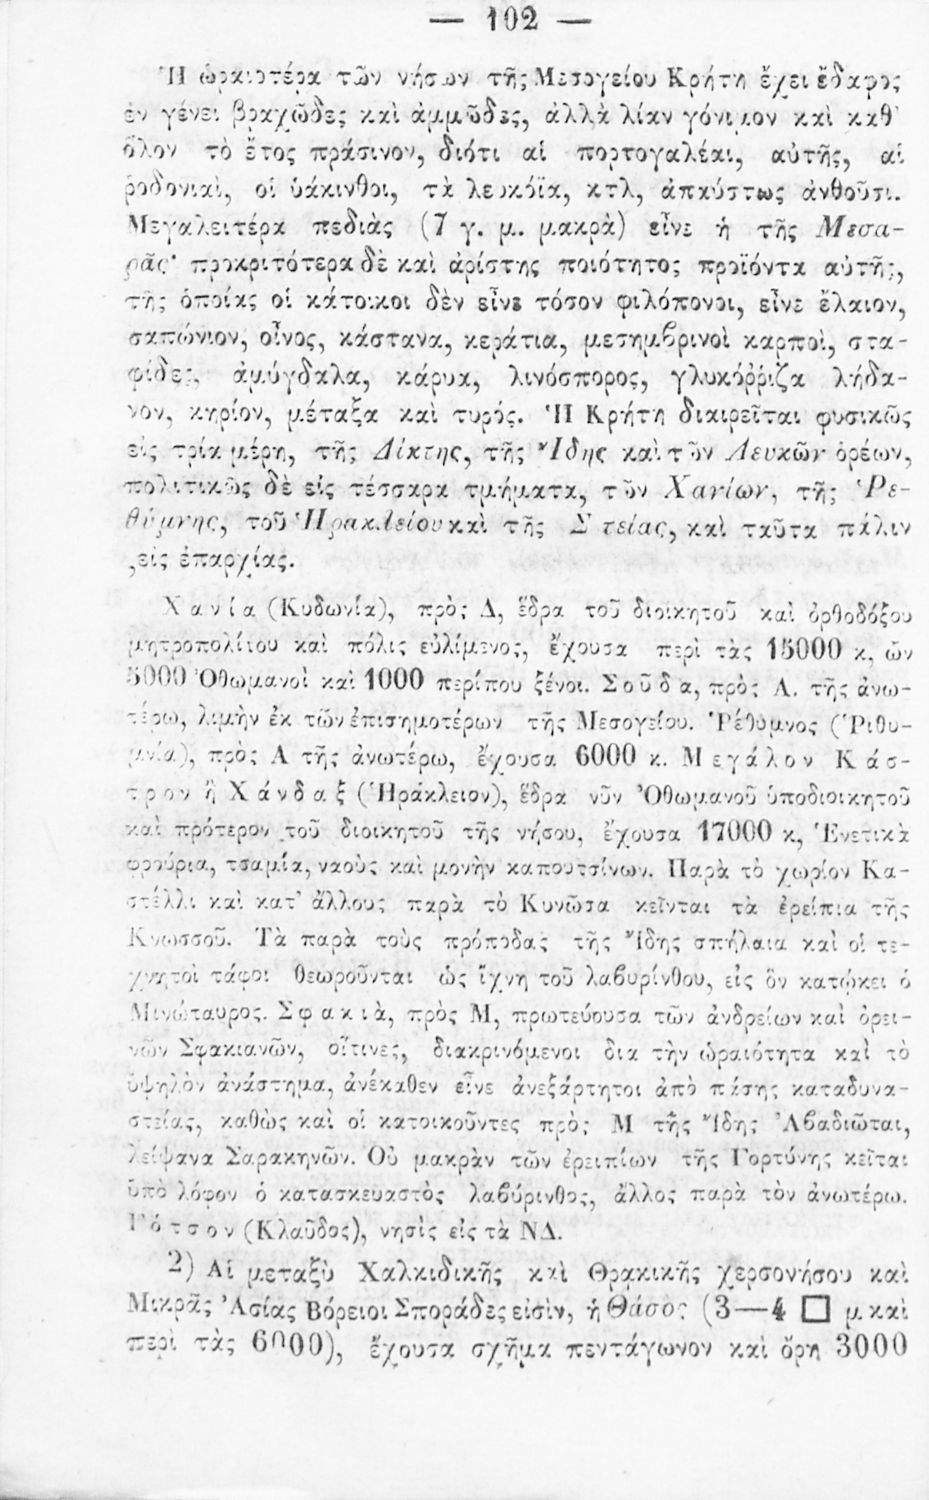 — 102 —
Ἡ ὡραιοτέρα τῶν νήσων τῆς Μεσογείου Κρήτη ἔχει ἔδαφος
ἐν γένει βραχῶδες καὶ ἀμμῶδες, ἀλλὰ λίαν γόνιμον καὶ καθ'
ὅλον τὸ ἔτος πράσινον, διότι αἱ πορτογαλέαι, αὐτῆς, αἱ
ῥοδονιαὶ, οἱ ὑάκινθοι, τὰ λευκόϊα, κτλ, ἀπαύστως ἀνθοῦσι.
Μεγαλειτέρα πεδιὰς (7 γ. μ. μακρὰ) εἶνε ἡ τῆς Μεσα-
ρᾶς· προκριτότερα δὲ καὶ ἀρίστης ποιότητος προϊόντα αὐτῆς,
τῆς ὁποίας οἱ κάτοικοι δὲν εἶνε τόσον φιλόπονοι, εἶνε ἔλαιον,
σαπώνιον, οἶνος, κάστανα, κεράτια, μεσημβρινοὶ καρποὶ, στα-
φίδες, ἀμύγδαλα, κάρυα, λινόσπορος, γλυκόῤῥιζα λήδα-
νον, κηρίον, μέταξα καὶ τυρός. Ἡ Κρήτη διαιρεῖται φυσικῶς
εἰς τρία μέρη, τῆς Δίκτης, τῆς Ἴδης καὶ τῶν Λευκῶν ὀρέων,
πολιτικῶς δὲ εἰς τέσσαρα τμήματα, τῶν Χανίων, τῆς Ῥε-
θύμνης, τοῦ Ἡρακλείου καὶ τῆς Σητείας, καὶ ταῦτα πάλιν
εἰς ἐπαρχίας.
Χανία (Κυδωνία), πρὸς Δ, ἕδρα τοῦ διοικητοῦ καὶ ὀρθοδόξου
μητροπολίτου καὶ πόλις εὐλίμενος, ἔχουσα περὶ τὰς 15000 κ, ὧν
5000 Ὀθωμανοὶ καὶ 1000 περίπου ξένοι. Σοῦδα, πρὸς Α. τῆς ἀνω-
τέρω, λιμὴν ἐκ τῶν ἐπισημοτέρων τῆς Μεσογείου. Ῥέθυμνος (Ῥιθυ-
μνία), πρὸς Α τῆς ἀνωτέρω, ἔχουσα 6000 κ. Μεγάλον Κάσ-
τρον ἢ Χάνδαξ (Ἡράκλειον), ἕδρα νῦν Ὀθωμανοῦ ὑποδιοικητοῦ
καὶ πρότερον τοῦ διοικητοῦ τῆς νήσου, ἔχουσα 17000 κ, Ἑνετικὰ
φρούρια, τσαμία, ναοὺς καὶ μονὴν καπουτσίνων. Παρὰ τὸ χωρίον Κα-
στέλλι καὶ κατ' ἄλλους παρὰ τὸ Κυνῶσα κεῖνται τὰ ἐρείπια τῆς
Κνωσσοῦ. Τὰ παρὰ τοὺς πρόποδας τῆς Ἴδης σπήλαια καὶ οἱ τε-
χνητοὶ τάφοι θεωροῦνται ὡς ἴχνη τοῦ λαβυρίνθου, εἰς ὃν κατῴκει ὁ
Μινώταυρος. Σφακιὰ, πρὸς Μ, πρωτεύουσα τῶν ἀνδρείων καὶ ὀρει-
νῶν Σφακιανῶν, οἵτινες, διακρινόμενοι δια τὴν ὡραιότητα καὶ τὸ
ὑψηλὸν ἀνάστημα, ἀνέκαθεν εἶνε ἀνεξάρτητοι ἀπὸ πάσης καταδυνα-
στείας, καθὼς καὶ οἱ κατοικοῦντες πρὸς Μ τῆς Ἴδης Ἀβαδιῶται,
λείψανα Σαρακηνῶν. Οὐ μακρὰν τῶν ἐρειπίων τῆς Γορτύνης κεῖται
ὑπὸ λόφον ὁ κατασκευαστὸς λαβύρινθος, ἄλλος παρὰ τὸν ἀνωτέρω.
Γότσον (Κλαῦδος), νησὶς εἰς τὰ ΝΔ.
2) Αἱ μεταξὺ Χαλκιδικῆς καὶ Θρακικῆς χερσονήσου καὶ
Μικρᾶς Ἀσίας Βόρειοι Σποράδες εἰσὶν, ἡ Θάσος (3—4 □ μ καὶ
περὶ τὰς 6000), ἔχουσα σχῆμα πεντάγωνον καὶ ὄρη 3000